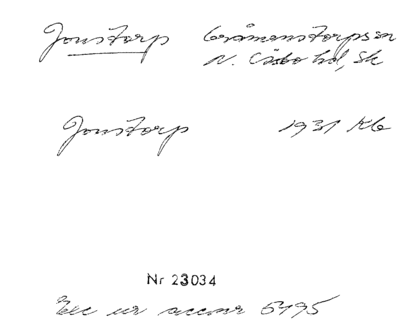 Jonstorp Gråmanstorps sn
N. Åsbo hd, Sk
Jonstorp 1931 KG
Nr 23034
Exc ur accnr 5495